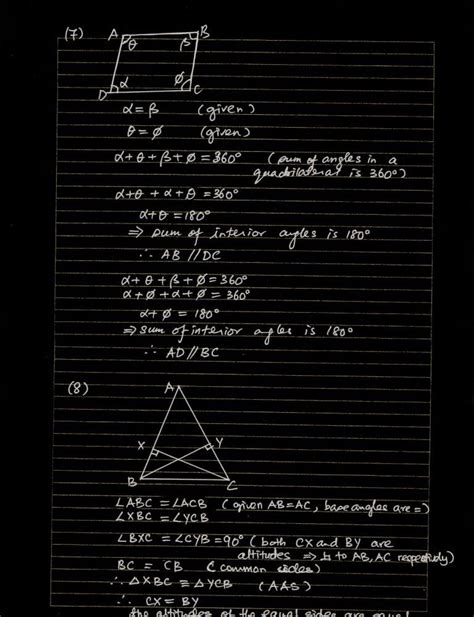 (7)
A B
θ β
α φ
D C
α = β (given)
θ = φ (given)
α + θ + β + φ = 360° (sum of angles in a
quadrilateral is 360°)
α + θ + α + θ = 360°
α + θ = 180°
⇒ sum of interior angles is 180°
∴ AB // DC
α + θ + β + φ = 360°
α + φ + α + φ = 360°
α + φ = 180°
⇒ sum of interior agles is 180°
∴ AD // BC
(8)
A
X Y
B C
∠ABC = ∠ACB (given AB=AC, base angles are =)
∠XBC = ∠YCB
∠BXC = ∠CYB = 90° (both CX and BY are
altitudes ⇒ ⊥ to AB, AC respectively)
BC = CB (common sides)
∴ △XBC ≡ △YCB (AAS)
∴ CX = BY
the altitudes of the equal sides are equal